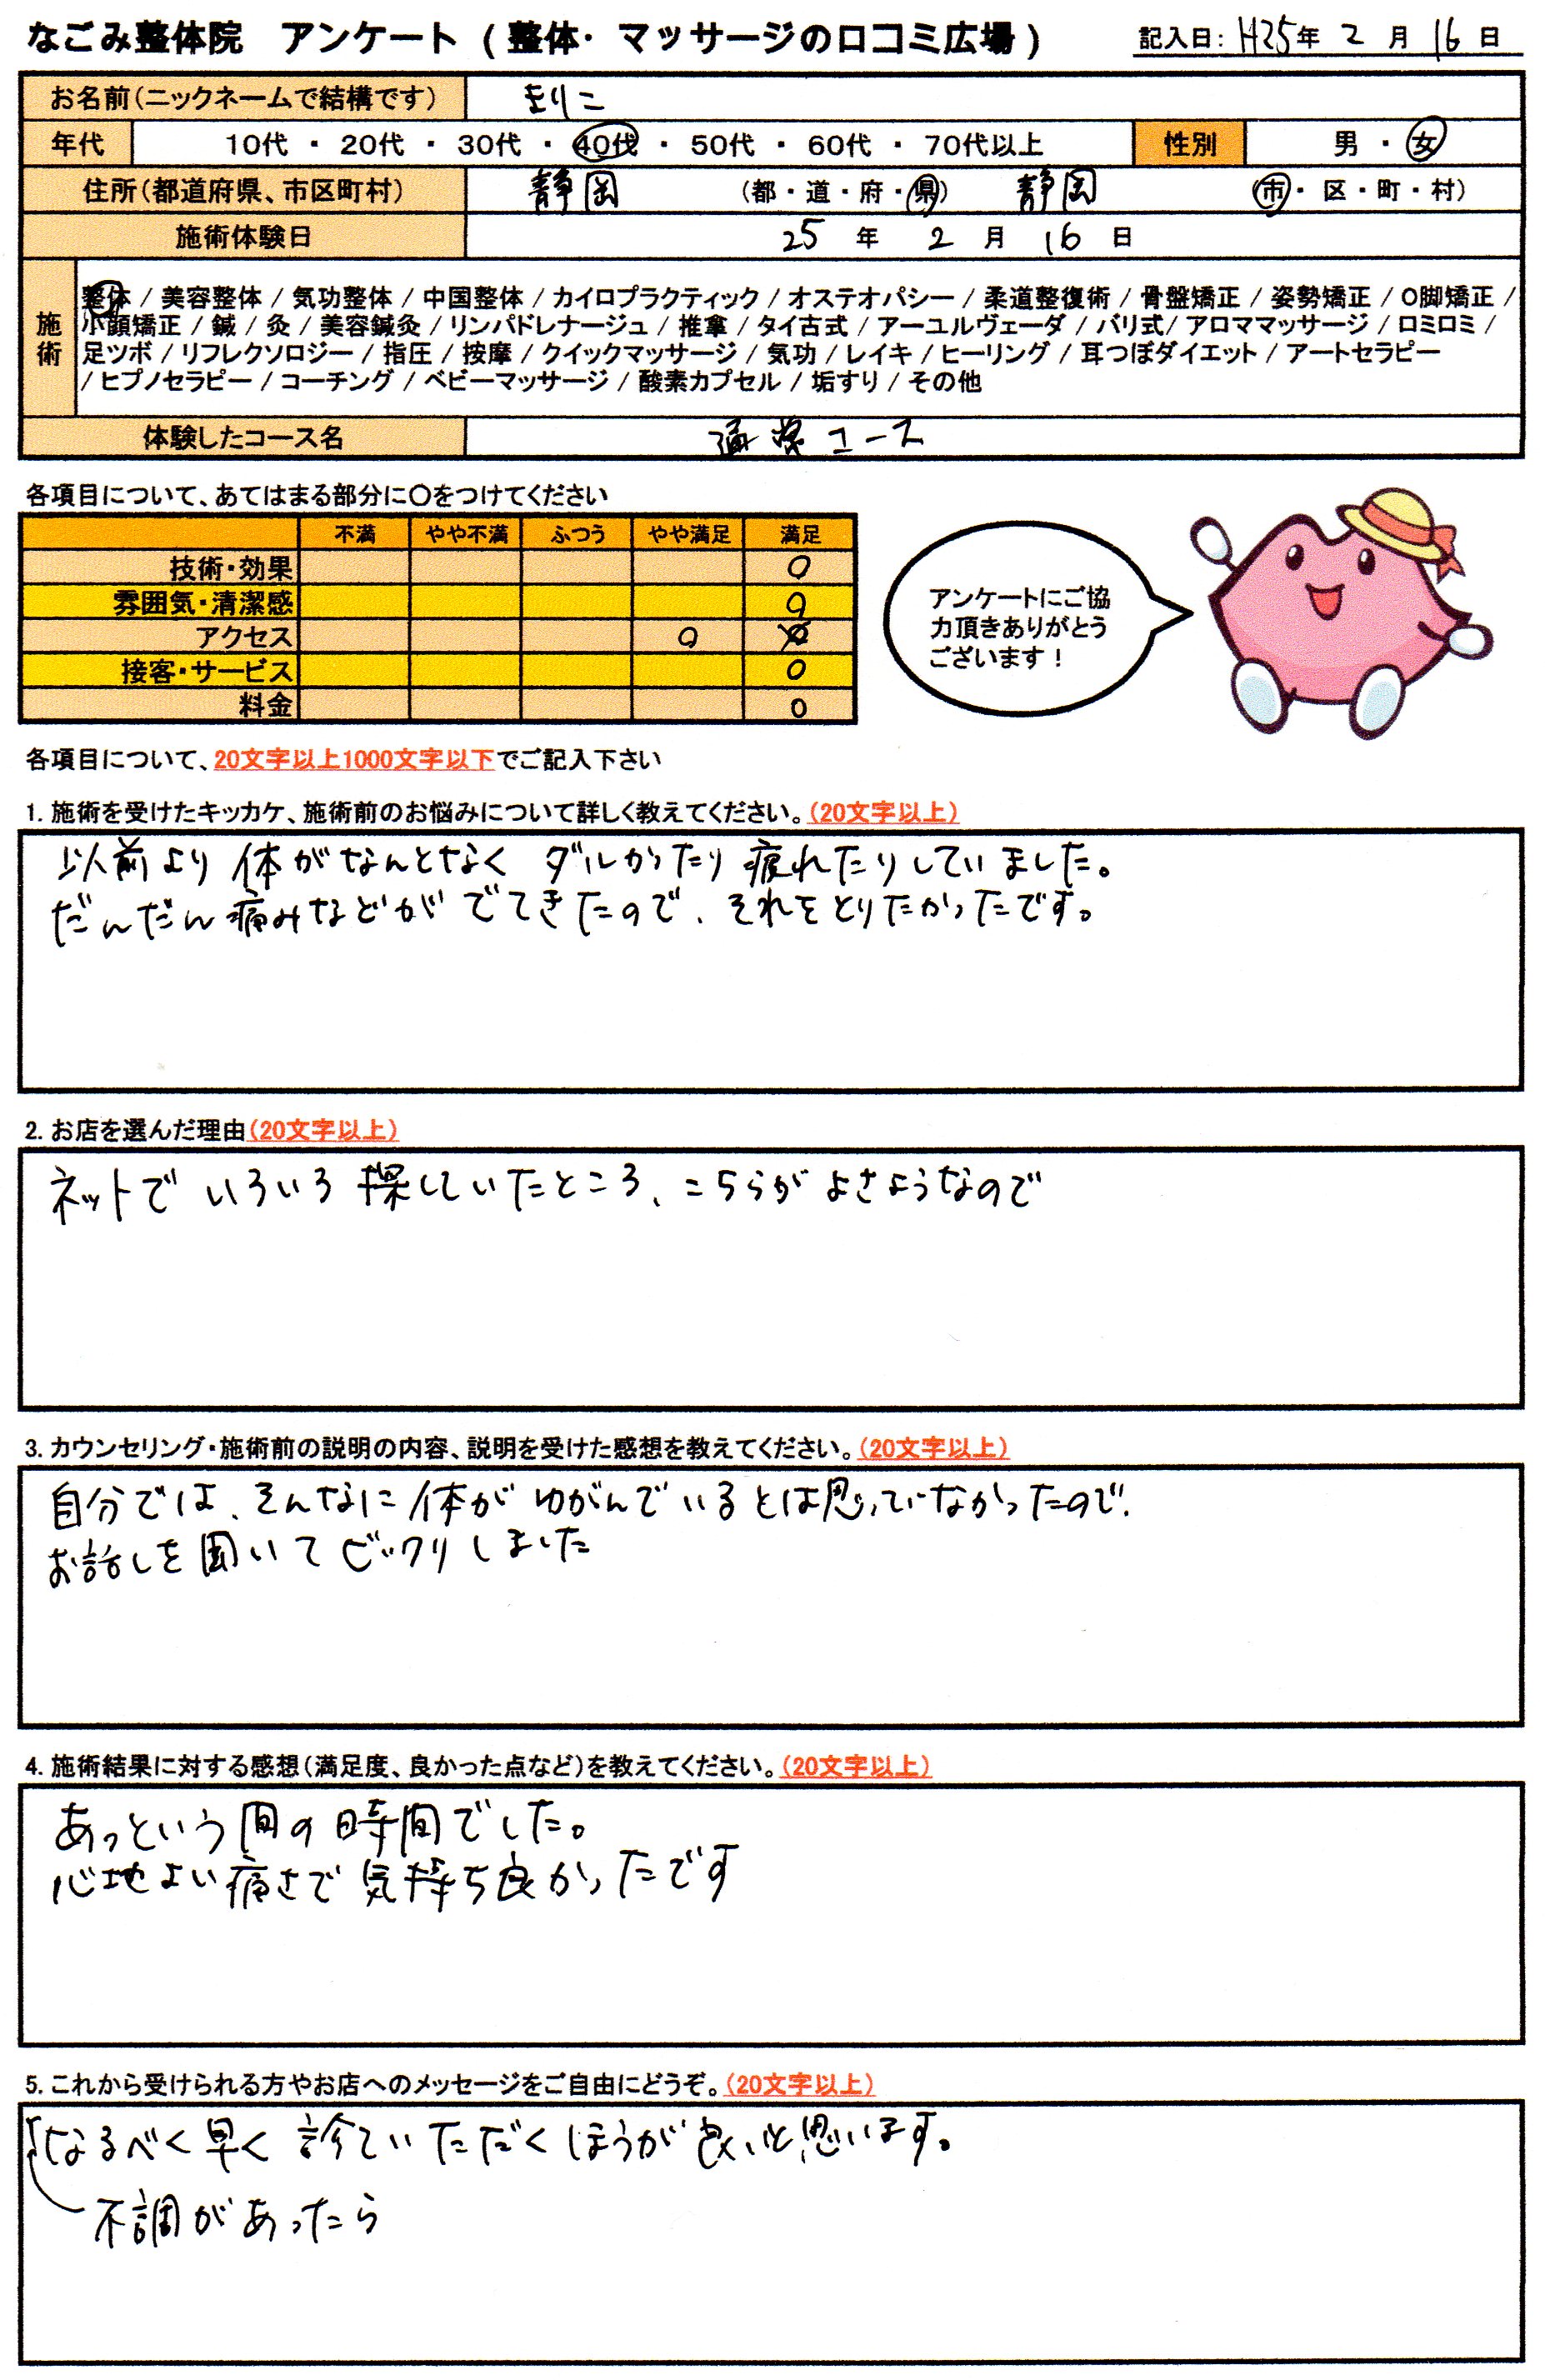 なごみ整体院 アンケート (整体・マッサージの口コミ広場)
記入日: H25年 2 月 16 日
お名前(ニックネームで結構です) まりこ
年代 10代 ・ 20代 ・ 30代 ・ 40代 ・ 50代 ・ 60代 ・ 70代以上 性別 男 ・ 女
住所(都道府県、市区町村) 静岡 (都・道・府・県) 静岡 (市・区・町・村)
施術体験日 25 年 2 月 16 日
施術
整体 / 美容整体 / 気功整体 / 中国整体 / カイロプラクティック / オステオパシー / 柔道整復術 / 骨盤矯正 / 姿勢矯正 / O脚矯正 /
小顔矯正 / 鍼 / 灸 / 美容鍼灸 / リンパドレナージュ / 推拿 / タイ古式 / アーユルヴェーダ / バリ式 / アロママッサージ / ロミロミ /
足ツボ / リフレクソロジー / 指圧 / 按摩 / クイックマッサージ / 気功 / レイキ / ヒーリング / 耳つぼダイエット / アートセラピー
/ ヒプノセラピー / コーチング / ベビーマッサージ / 酸素カプセル / 垢すり / その他
体験したコース名 通常コース
各項目について、あてはまる部分に〇をつけてください
不満 やや不満 ふつう やや満足 満足
技術・効果 〇
雰囲気・清潔感 〇
アクセス 〇
接客・サービス 〇
料金 〇
アンケートにご協
力頂きありがとう
ございます!
各項目について、20文字以上1000文字以下でご記入下さい
1. 施術を受けたキッカケ、施術前のお悩みについて詳しく教えてください。(20文字以上)
以前より体がなんとなく ダルかったり疲れたりしていました。
だんだん痛みなどがでてきたので、それをとりたかったです。
2. お店を選んだ理由(20文字以上)
ネットでいろいろ探していたところ、こちらがよさようなので
3. カウンセリング・施術前の説明の内容、説明を受けた感想を教えてください。(20文字以上)
自分では、そんなに体がゆがんでいるとは思っていなかったので、
お話しを聞いてビックリしました
4. 施術結果に対する感想(満足度、良かった点など)を教えてください。(20文字以上)
あっという間の時間でした。
心地よい痛さで気持ち良かったです
5. これから受けられる方やお店へのメッセージをご自由にどうぞ。(20文字以上)
なるべく早く診ていただくほうが良いと思います。
不調があったら